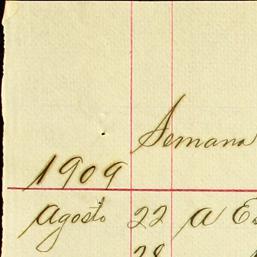 Semana
1909
Agosto 22 A Es
28